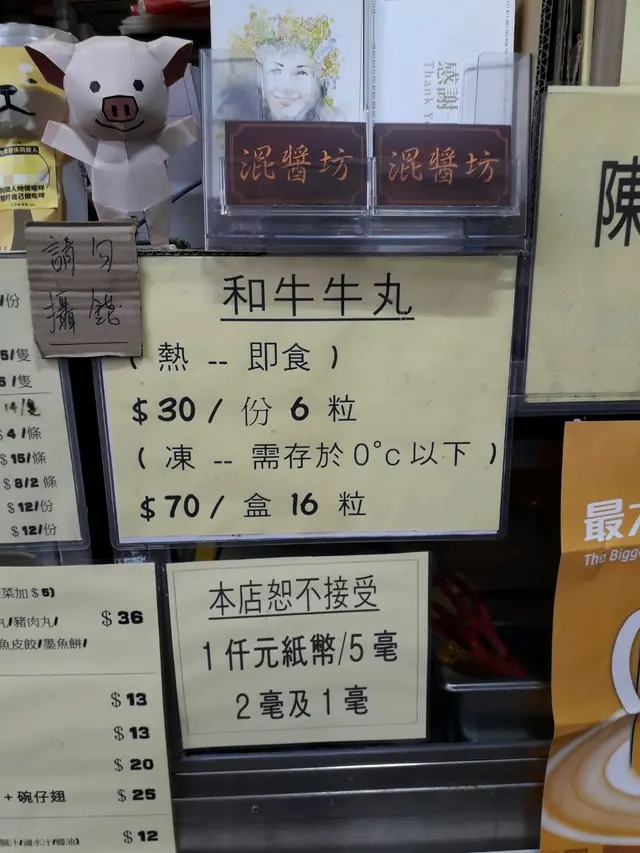 感謝
混醬坊
混醬坊
請勿
攝錄
和牛牛丸
( 熱 -- 即食 )
$30 / 份 6 粒
( 凍 -- 需存於 0°c 以下 )
$70 / 盒 16 粒
陳
/份
/隻
/隻
14/隻
$4/條
$15/條
$8/2條
$12/份
$12/份
本店恕不接受
1仟元紙幣/5毫
2毫及1毫
菜加$5)
丸/豬肉丸/
$36
魚皮餃/墨魚餅/
$13
$13
$20
+碗仔翅 $25
$12
最
The Bigg